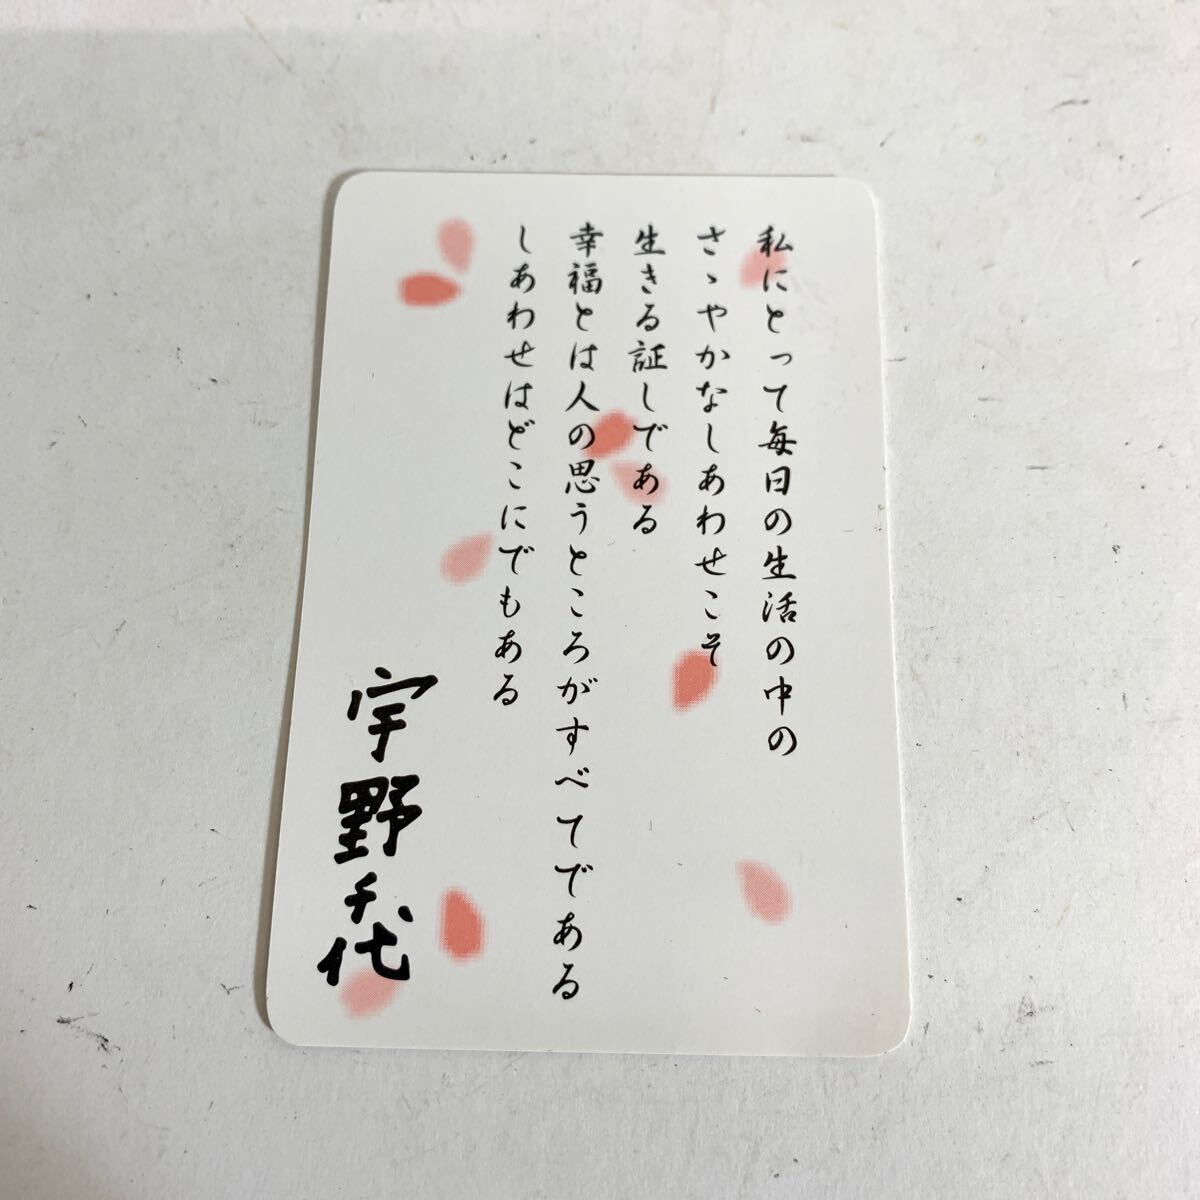 私にとって毎日の生活の中の
さゝやかなしあわせこそ
生きる証しである
幸福とは人の思うところがすべてである
しあわせはどこにでもある
宇野千代